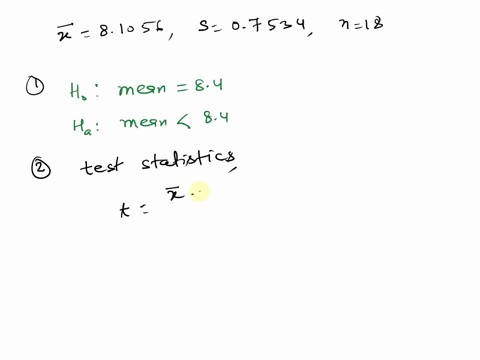 x̄ = 8.1056, S = 0.7534, n = 18
① H₀: mean = 8.4
Hₐ: mean < 8.4
② test statistics,
t = x̄ -